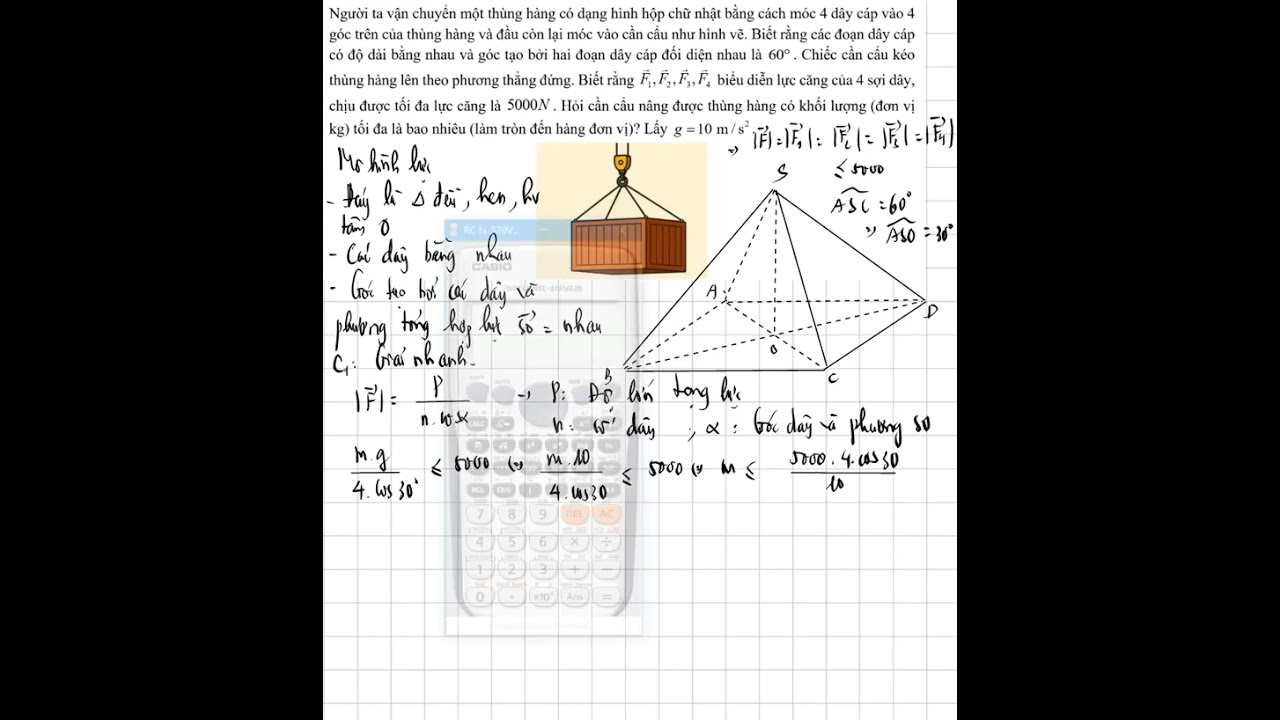 Người ta vận chuyển một thùng hàng có dạng hình hộp chữ nhật bằng cách móc 4 dây cáp vào 4
góc trên của thùng hàng và đầu còn lại móc vào cần cẩu như hình vẽ. Biết rằng các đoạn dây cáp
có độ dài bằng nhau và góc tạo bởi hai đoạn dây cáp đối diện nhau là 60°. Chiếc cần cẩu kéo
thùng hàng lên theo phương thẳng đứng. Biết rằng F⃗₁, F⃗₂, F⃗₃, F⃗₄ biểu diễn lực căng của 4 sợi dây,
chịu được tối đa lực căng là 5000N. Hỏi cần cẩu nâng được thùng hàng có khối lượng (đơn vị
kg) tối đa là bao nhiêu (làm tròn đến hàng đơn vị)? Lấy g = 10 m/s²
=> |F⃗| = |F⃗₁| = |F⃗₂| = |F⃗₃| = |F⃗₄|
≤ 5000
Mô hình lực
- Đáy là Δ đều, hcn, hv
tâm O
- Các dây bằng nhau
- Góc tạo bởi các dây và
phương tổng hợp lực SO⃗ = nhau
C₁: Giải nhanh.
S
ASC = 60°
=> ASO = 30°
A
D
O
B
C
RC fx-570V...
CASIO
|F⃗| = P / n.cosα -> P: Độ lớn trọng lực
n: số dây ; α: Góc dây và phương SO
m.g / 4.cos30° ≤ 5000 <=> m.10 / 4.cos30 ≤ 5000 <=> m ≤ 5000.4.cos30 / 10
DEL AC
7 8 9
4 5 6 × ÷
1 2 3 + −
0 . ×10ˣ Ans =